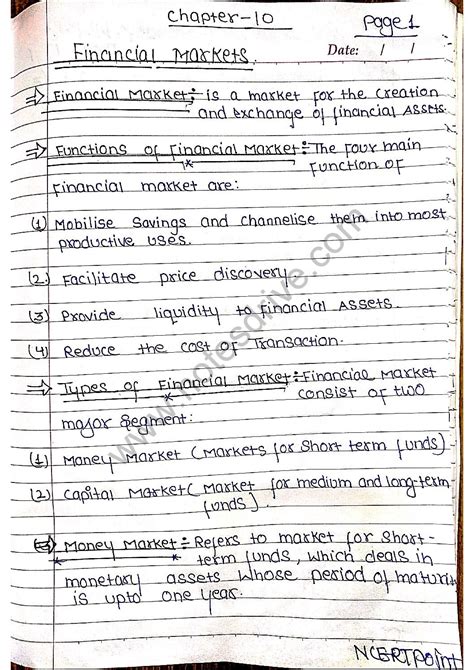 Chapter-10
Page 1
Financial Markets.
Date: / /
⇒ Financial Market:- is a market for the creation
and exchange of financial Assets.
⇒ Functions of Financial Market:- The four main
function of
financial market are:
(1) Mobilise Savings and channelise them into most
productive uses.
(2) Facilitate price discovery.
(3) Provide liquidity to financial Assets.
(4) Reduce the cost of Transaction.
⇒ Types of Financial Market:- Financial Market
consist of two
major segment:
(1) Money Market (Markets for Short term funds)
(2) Capital Market (Market for medium and long-term
funds).
⇒ Money Market:- Refers to market for Short-
term funds, which deals in
monetary assets whose period of maturity
is upto one year.
NCERT Point
www.notesdrive.com